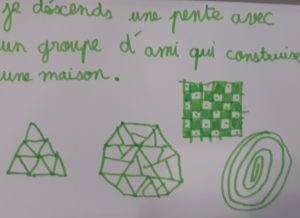 je déscends une pente avec
un groupe d'ami qui construise
une maison.